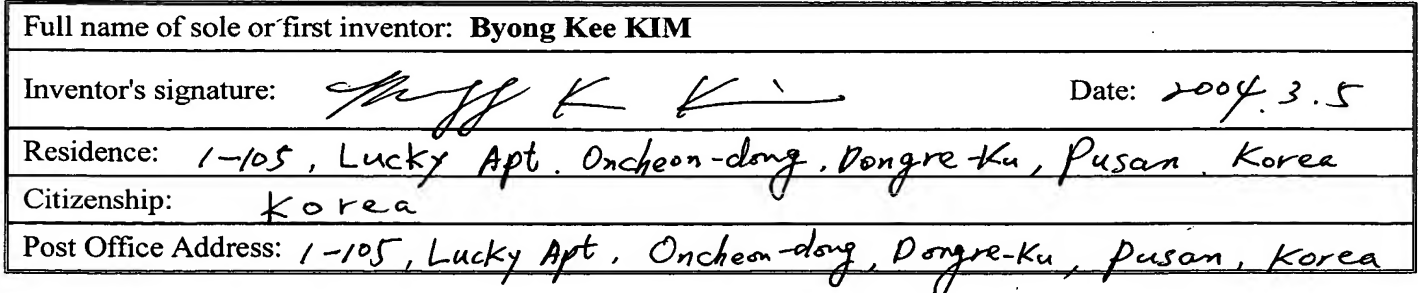 Full name of sole or first inventor: Byong Kee KIM
Inventor's signature: K Ki Date: 2004.3.5
Residence: 1-105, Lucky Apt. Oncheon-dong, Dongre-Ku, Pusan. Korea
Citizenship: Korea
Post Office Address: 1-105, Lucky Apt. Oncheon-dong, Dongre-Ku, Pusan, Korea